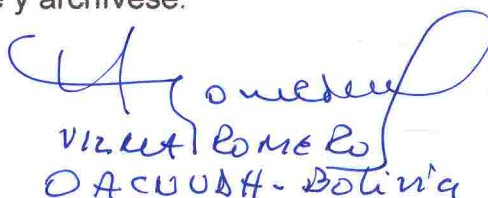 y archívese.
VILMA ROMERO
OACNUDH - Bolivia